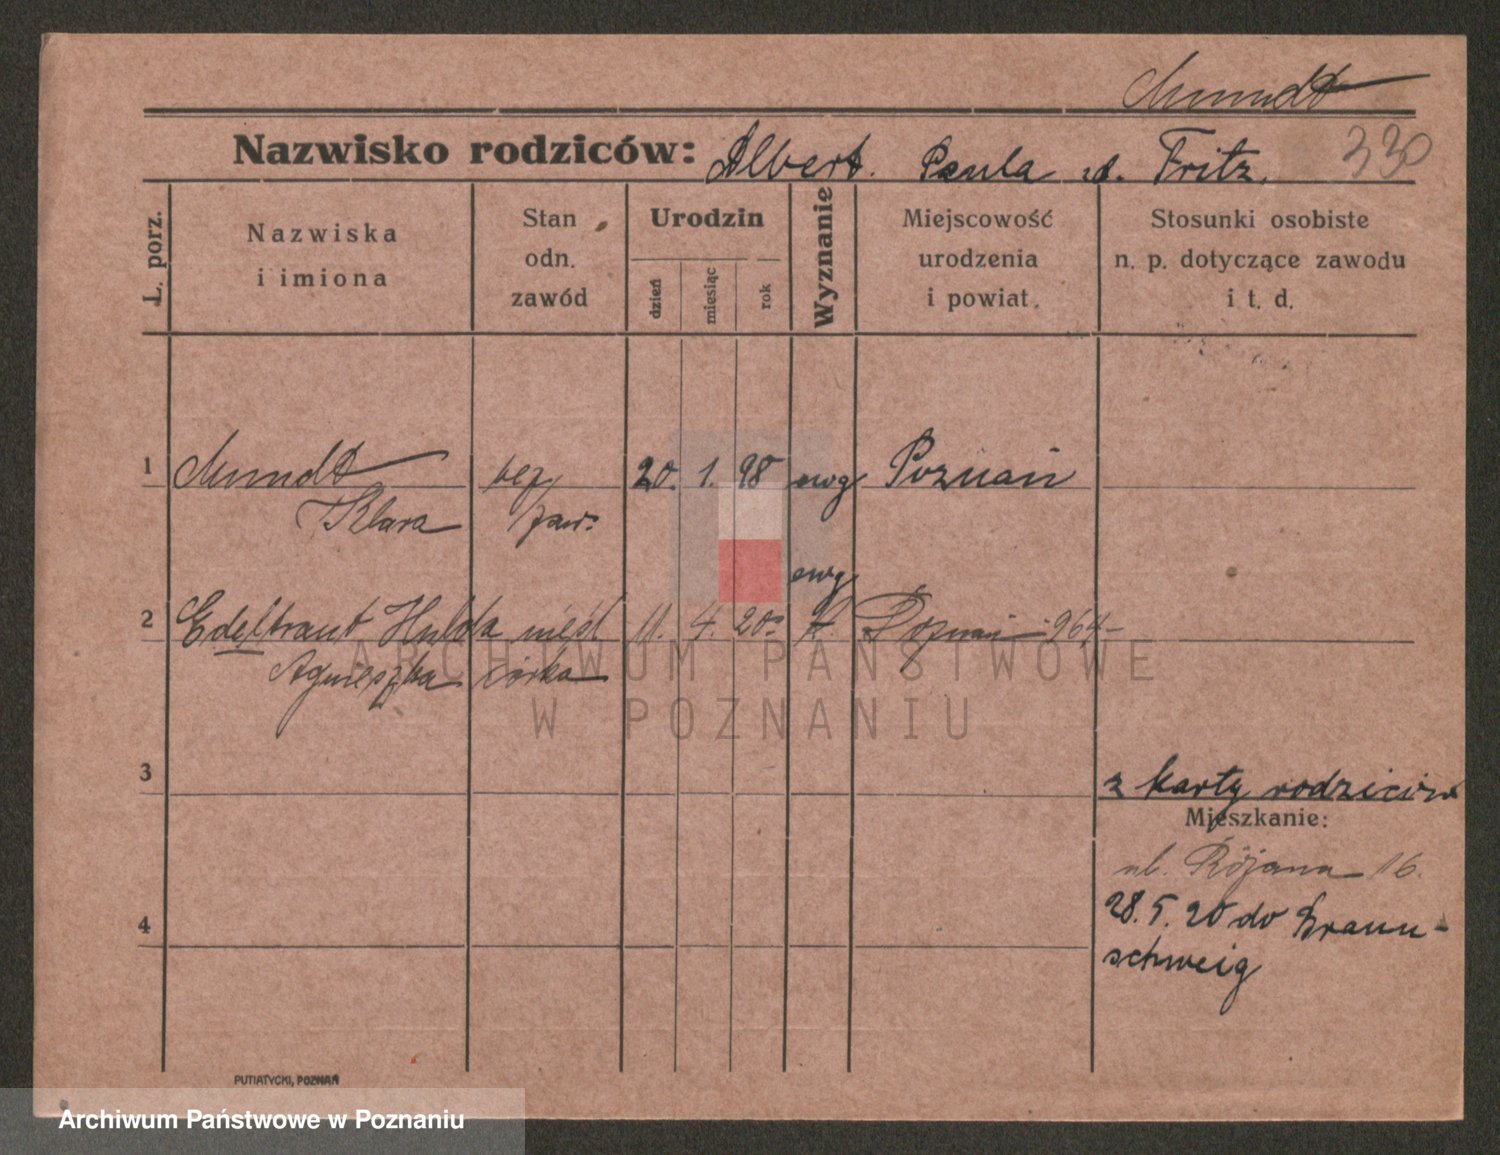 Mundt
Nazwisko rodziców: Albert. Paula d. Fritz.
330
L. porz.
Nazwiska
i imiona
Stan
odn.
zawód
Urodzin
dzień
miesiąc
rok
Wyznanie
Miejscowość
urodzenia
i powiat.
Stosunki osobiste
n. p. dotyczące zawodu
i t. d.
1 Mundt bez 20. 1. 98 ewg Poznań
Klara zaw.
ewg
2 Edeltraut Hulda nieśl 11. 4. 20. Poznań 964
Agnieszka córka
ARCHIWUM PAŃSTWOWE
W POZNANIU
3
z karty rodziców
Mieszkanie:
ul. Różana 16.
28. 5. 20 do Braun-
schweig
4
PUTIATYCKI, POZNAŃ
Archiwum Państwowe w Poznaniu